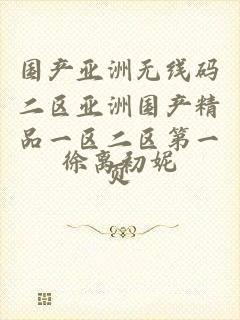 国产亚洲无线码
二区亚洲国产精
品一区二区第一
页
徐离初妮